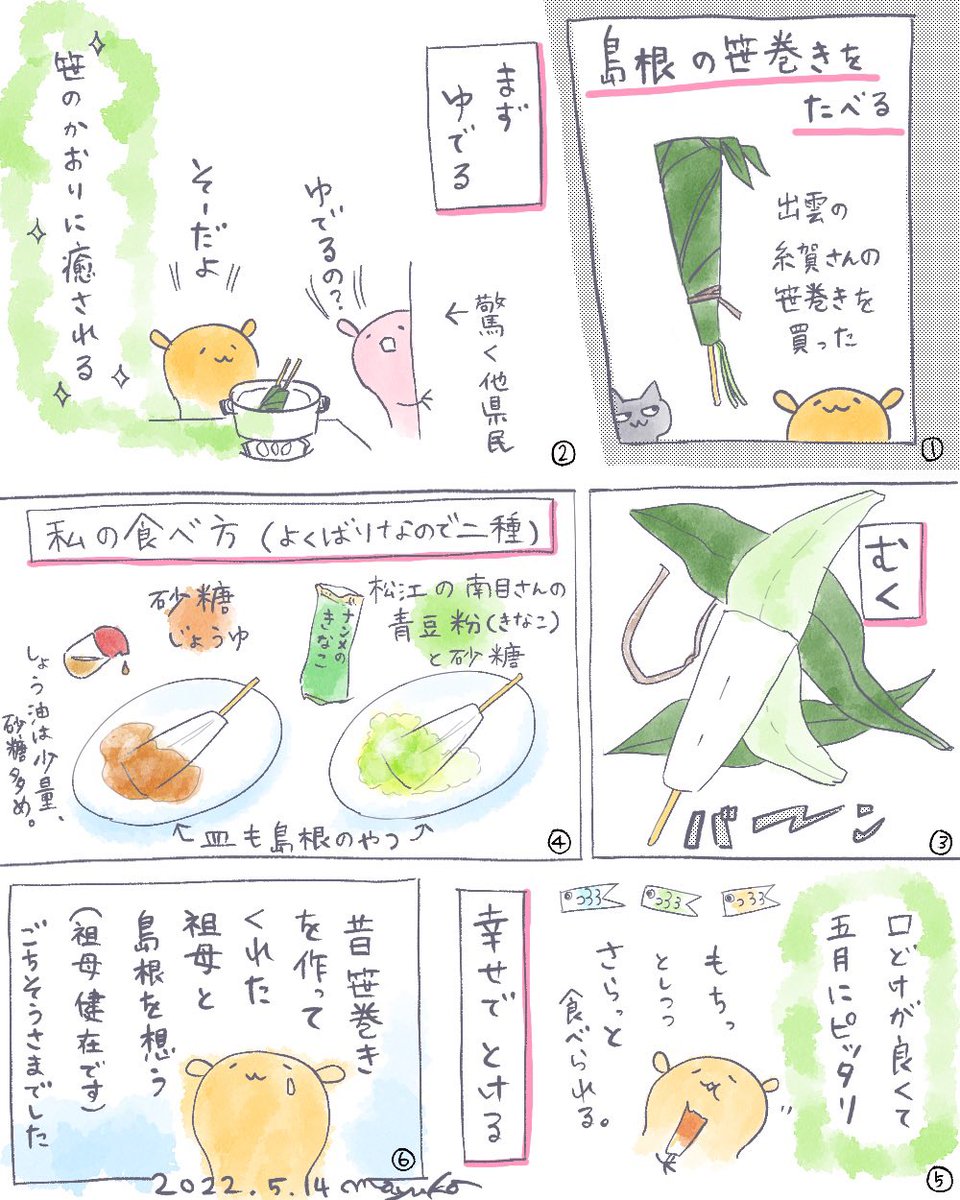 島根の笹巻きを
たべる
出雲の
糸賀さんの
笹巻きを
買った
①
まず
ゆでる
驚く他県民
←
ゆでるの?
そーだよ
笹のかおりに癒される
②
むく
バーン
③
私の食べ方(よくばりなので二種)
砂糖
じょうゆ
しょう油は少量、
砂糖多め。
ナンメの
きなこ
松江の南目さんの
青豆粉(きなこ)
と砂糖
←皿も島根のやつ→
④
口どけが良くて
五月にピッタリ
もちっ
としつつ
さらっと
食べられる。
⑤
幸せでとける
昔笹巻き
を作って
くれた
祖母と
島根を想う
(祖母健在です)
ごちそうさまでした
⑥
2022.5.14 mayuko